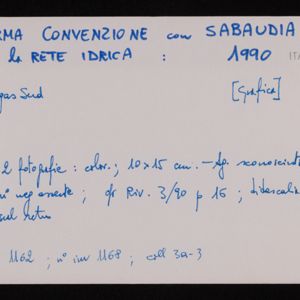 RMA CONVENZIONE con SABAUDIA
la RETE IDRICA : 1990
ITA
gas Sud [Grafica]
2 fotografie : color. ; 10x15 cm. - Ag. sconosciuta
n° neg assente ; cfr Riv. 3/90 p 16 ; didascalia
sul retro
1162 ; n° inv 1168 ; coll 3a-3